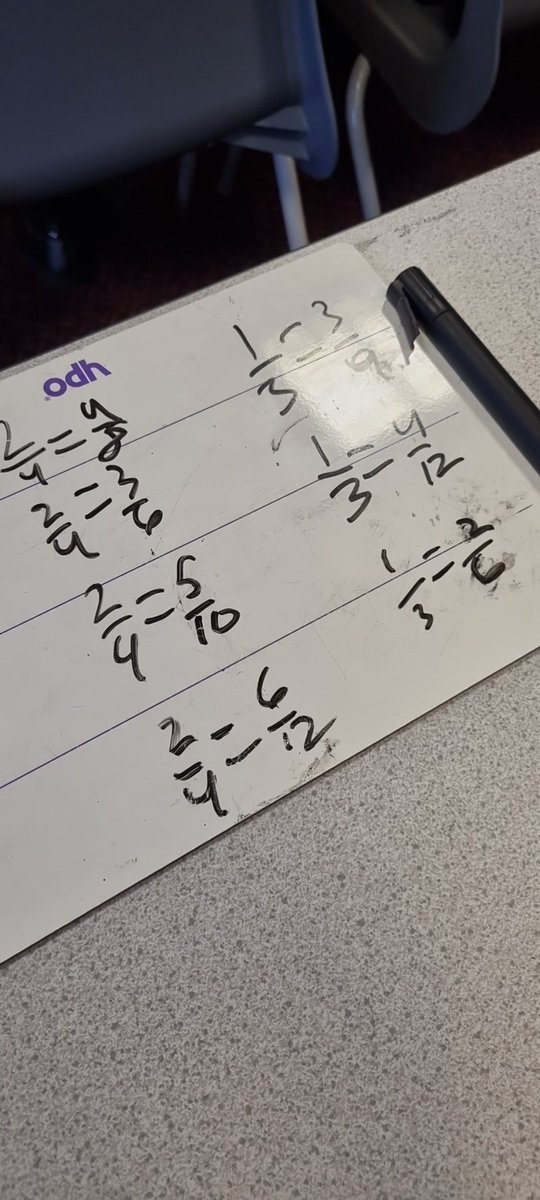 ypo
2/4 = 4/8
2/4 = 3/6
2/4 = 5/10
2/4 = 6/12
1/3 = 3/9
1/3 = 4/12
1/3 = 2/6